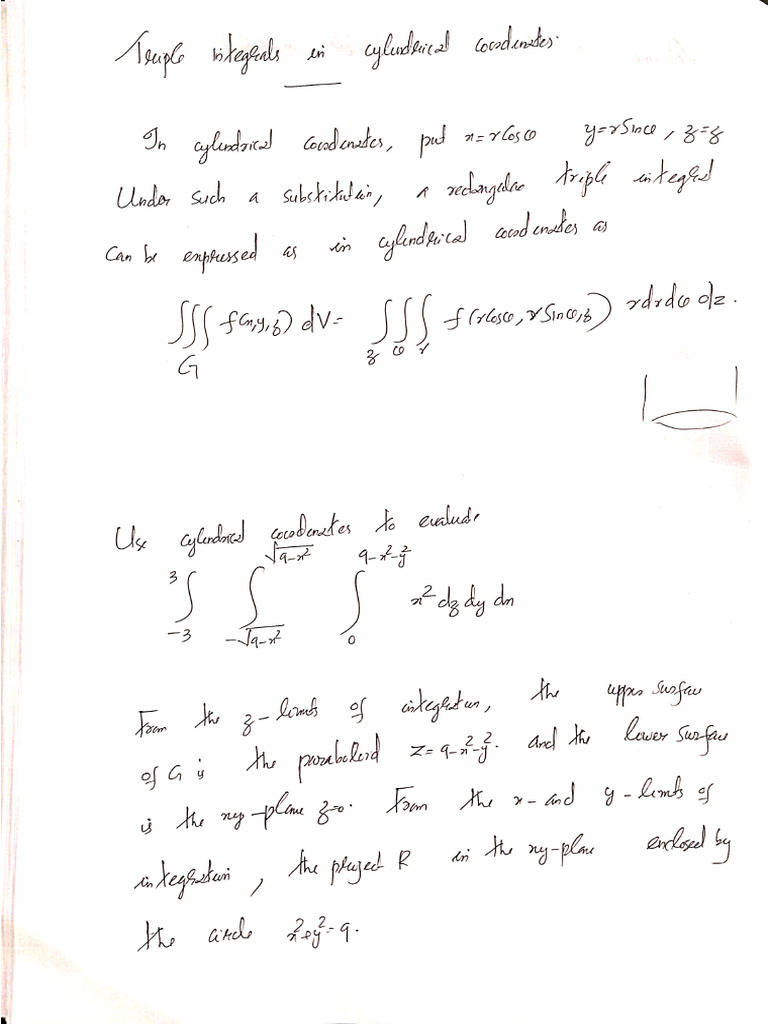 Triple integrals in cylindrical coordinates.
In cylindrical coordinates, put x=rCosθ y=rSinθ, z=z
Under such a substitution, a rectangular triple integral
Can be expressed as in cylindrical coordinates as
∭_G f(x,y,z) dV = ∫_z ∫_θ ∫_r f(rCosθ, rSinθ, z) r dr dθ dz.
Use cylindrical coordinates to evaluate
∫_{-3}^{3} ∫_{-√(9-x²)}^{√(9-x²)} ∫_0^{9-x²-y²} x² dz dy dx
From the z-limits of integration, the upper surface
of G is the paraboloid z=9-x²-y². and the lower surface
is the xy-plane z=0. From the x- and y-limits of
integration, the project R in the xy-plane enclosed by
the circle x²+y²=9.